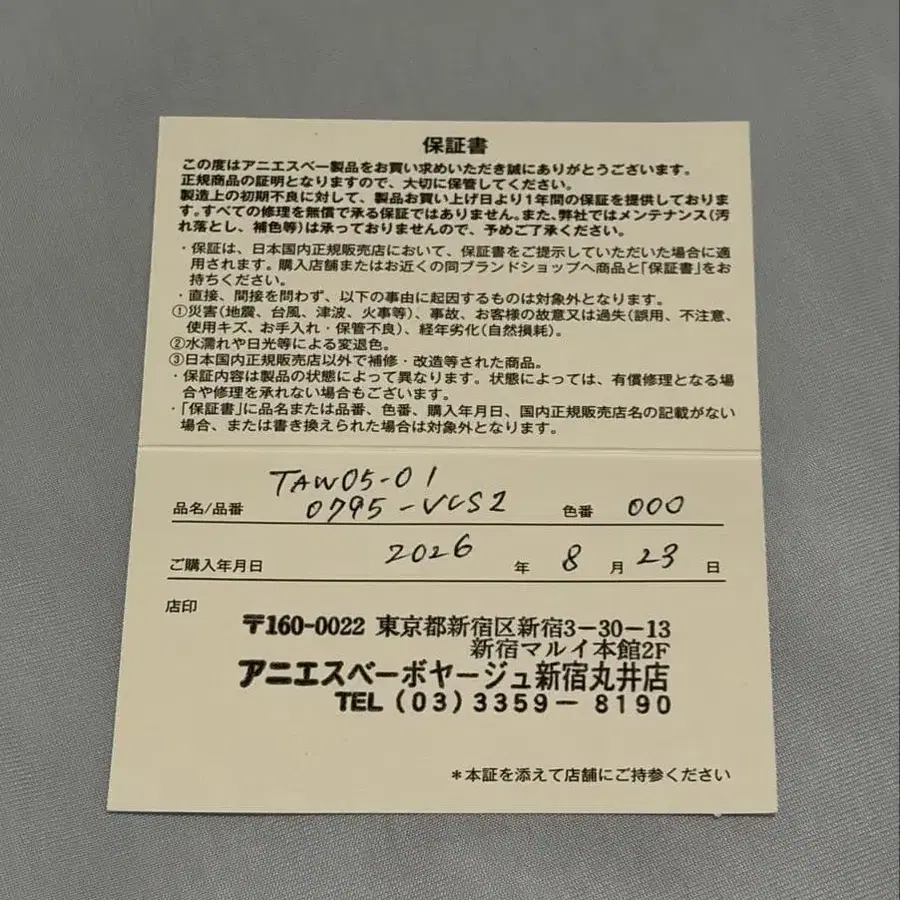 保証書
この度はアニエスベー製品をお買い求めいただき誠にありがとうございます。
正規商品の証明となりますので、大切に保管してください。
製造上の初期不良に対して、製品お買い上げ日より1年間の保証を提供しておりま
す。すべての修理を無償で承る保証ではありません。また、弊社ではメンテナンス(汚
れ落とし、補色等)は承っておりませんので、予めご了承ください。
・保証は、日本国内正規販売店において、保証書をご提示していただいた場合に適
用されます。購入店舗またはお近くの同ブランドショップへ商品と「保証書」をお
持ちください。
・直接、間接を問わず、以下の事由に起因するものは対象外となります。
①災害(地震、台風、津波、火事等)、事故、お客様の故意又は過失(誤用、不注意、
使用キズ、お手入れ・保管不良)、経年劣化(自然損耗)。
②水濡れや日光等による変退色。
③日本国内正規販売店以外で補修・改造等された商品。
・保証内容は製品の状態によって異なります。状態によっては、有償修理となる場
合や修理を承れない場合もございます。
・「保証書」に品名または品番、色番、購入年月日、国内正規販売店名の記載がない
場合、または書き換えられた場合は対象外となります。
TAW05-01
品名/品番 0795-VCS2 色番 000
ご購入年月日 2026 年 8 月 23 日
店印
〒160-0022 東京都新宿区新宿3-30-13
新宿マルイ本館2F
アニエスベーボヤージュ新宿丸井店
TEL (03) 3359-8190
*本証を添えて店舗にご持参ください